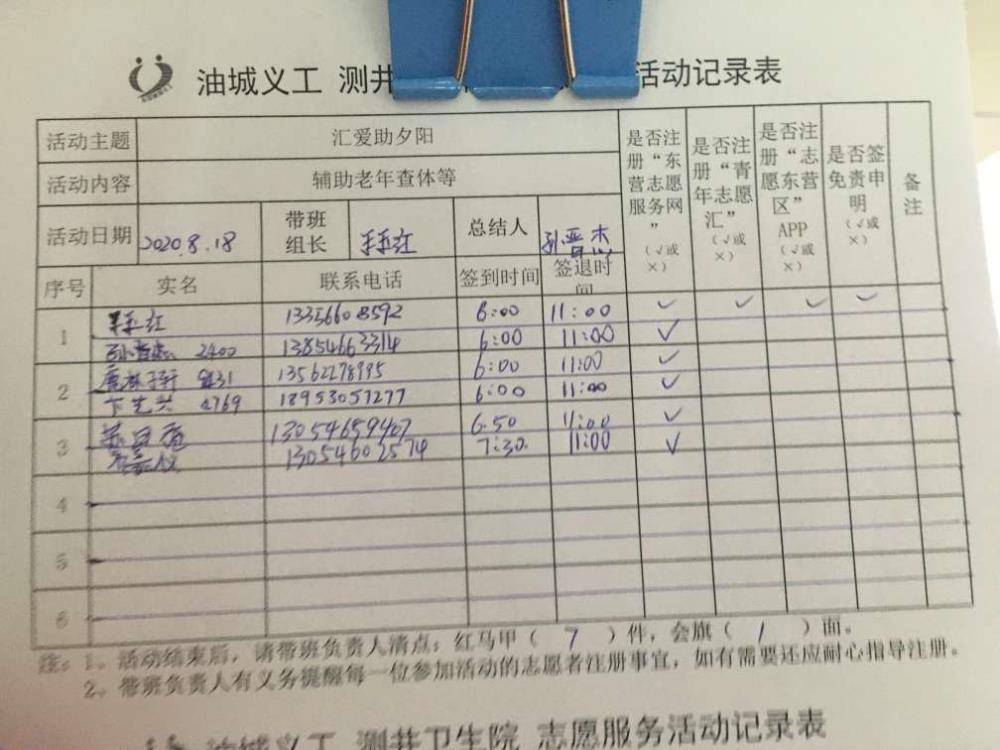 油城义工 测井 活动记录表
活动主题 汇爱助夕阳 是否注册“东营志愿服务网”(√或×) 是否注册“青年志愿汇”(√或×) 是否注册“志愿东营区”APP(√或×) 是否签免责申明(√或×) 备注
活动内容 辅助老年查体等
活动日期 2020.8.18 带班组长 总结人 孙晋杰
序号 实名 联系电话 签到时间 签退时间
1 13356608592 6:00 11:00 √ √ √ √
孙晋杰 2400 13854663314 6:00 11:00 √
2 9431 13562278995 6:00 11:00 √
卞先兴 4769 18953057277 6:00 11:00 √
3 13054659407 6.50 11:00 √
13054602574 7:30 11:00 √
4
5
6
注:1、活动结束后,请带班负责人清点:红马甲( 7 )件,会旗( 1 )面。
2、带班负责人有义务提醒每一位参加活动的志愿者注册事宜,如有需要还应耐心指导注册。
油城义工 测井卫生院 志愿服务活动记录表